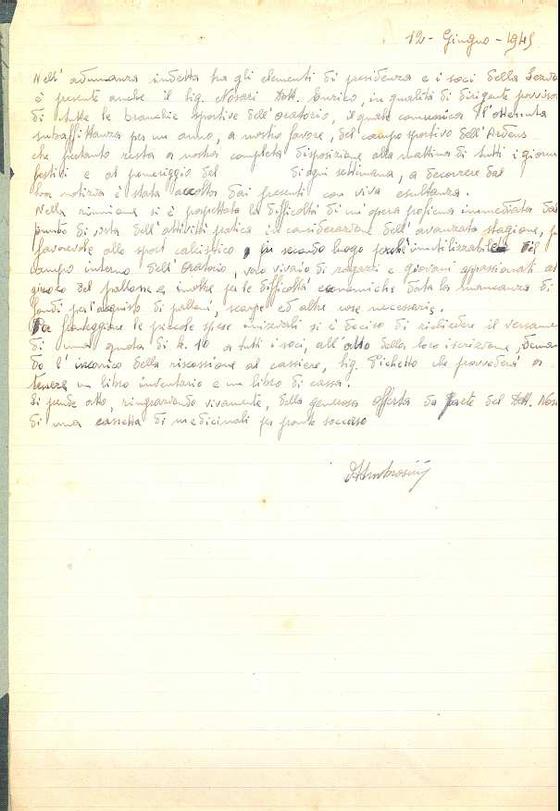 12 - Giugno - 1945
Nell' adunanza indetta tra gli elementi di presidenza e i soci della
è presente anche il Sig. Nosari Dott. Enrico, in qualità di dirigente
di tutte le branchie sportive dell'oratorio, il quale comunica l'ottenuta
subaffittanza per un anno, a nostro favore, del campo sportivo dell'Ardens
che pertanto resta a nostra completa disposizione alla mattina di tutti i giorni
festivi e al pomeriggio del di ogni settimana, a decorrere dal
notizia è stata accolta dai presenti con viva esultanza.
Nella riunione si è prospettata la difficoltà di un'opera proficua immediata dal
punto di vista dell'attività pratica in considerazione dell'avanzata stagione,
favorevole allo sport calcistico, in secondo luogo perchè inutilizzabile il
campo interno dell'Oratorio, vero vivaio di ragazzi e giovani appassionati al
giuoco del pallone e, inoltre per le difficoltà economiche data la mancanza di
fondi per l'acquisto di palloni, scarpe ed altre cose necessarie.
Per fronteggiare le piccole spese si è deciso di richiedere il
di una quota di £. 10 a tutti i soci, all'atto della loro iscrizione,
do l'incarico della riscossione al cassiere, sig. Pichetto che provvederà a
tenere un libro inventario e un libro di cassa.
Si prende atto, ringraziando vivamente, della generosa offerta da parte del Dott.
di una cassetta di medicinali per pronto soccorso